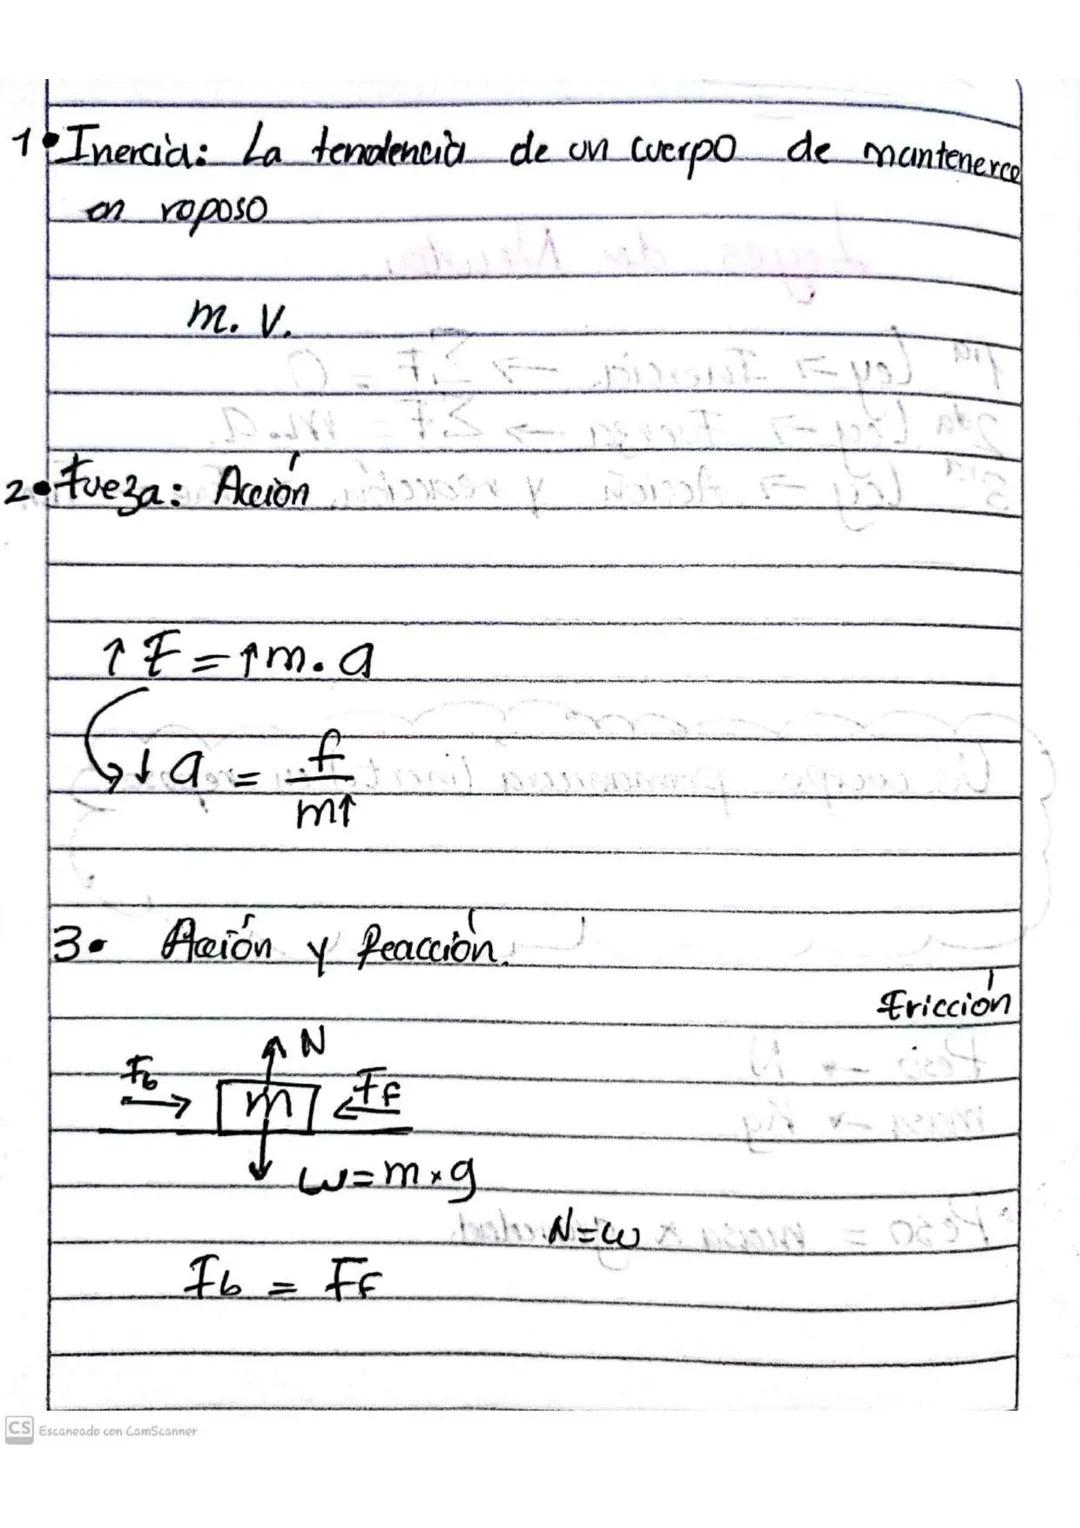 1• Inercia: La tendencia de un cuerpo de mantenerce
en roposo
m. v.
2• Fueza: Acción
↑ F = ↑m. a
↓ a = f
m↑
3• Acción y Reacción.
Fricción
N
Fb → m ← Ff
w=m×g
N=w
Fb = Ff
CS Escaneado con CamScanner